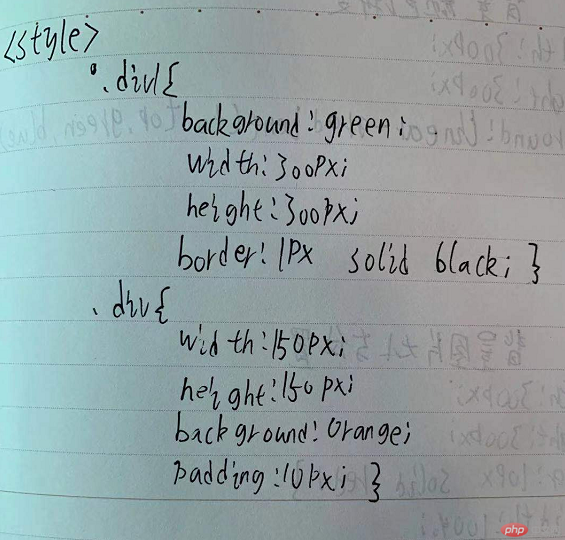 <style>
.div{
background:green;
width:300px;
height:300px;
border:1px solid black; }
.div{
width:150px;
height:150px;
background:orange;
padding:10px; }
php